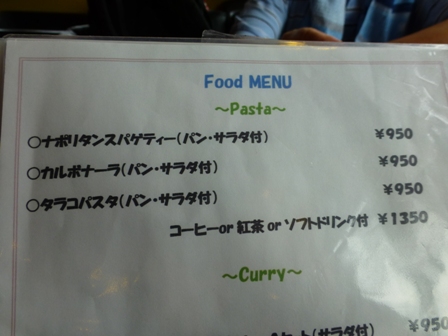 Food MENU
～Pasta～
○ナポリタンスパゲティー(パン・サラダ付) ¥950
○カルボナーラ(パン・サラダ付) ¥950
○タラコパスタ(パン・サラダ付) ¥950
コーヒーor 紅茶 or ソフトドリンク付 ¥1350
～Curry～
(サラダ付) ¥950